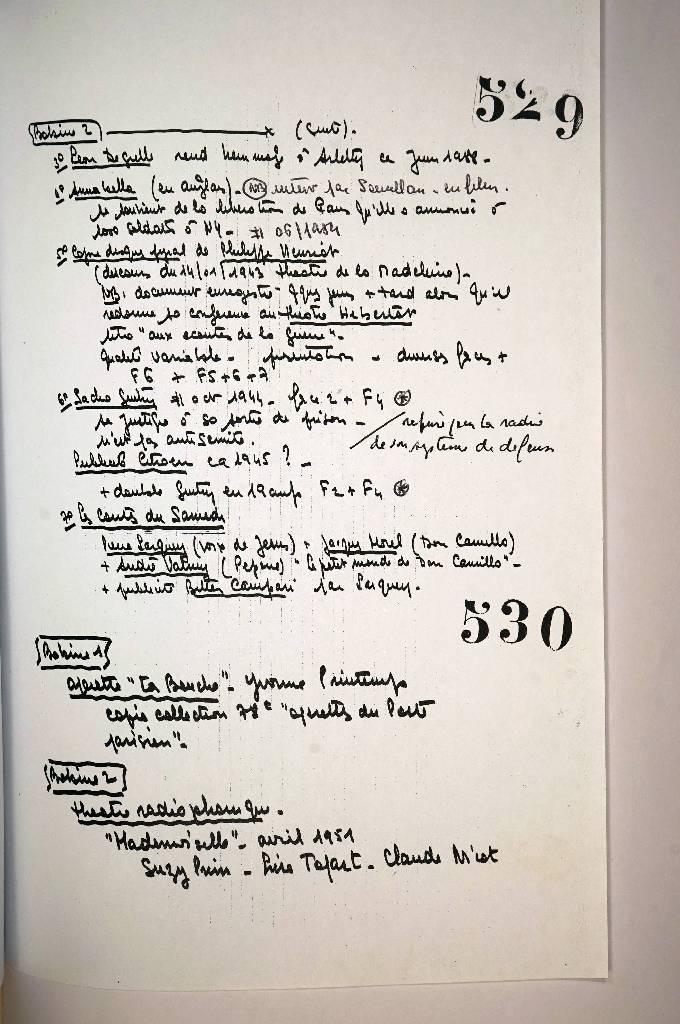 529
Bobine 2 (suite).
3° Leon Degrelle rend hommage à Arletty ca Juin 1988.
4° Annabella (en anglais) - NB interv par - en films.
se souvient de la liberation de Paris qu'elle a annoncé à
1000 soldats à NY - 06/1984
5° Copie disque pyral de Philippe Henriot
(discours du 14/01/1943 theatre de la Madeleine) -
NB: document enregistré qques jours + tard alors qu'il
redonne sa conference au theatre Hebertot
titre "aux ecoutes de la Guerre" -
qualité variable - presentation - diverses faces +
F6 + F5+6+7
6° Sacha Guitry oct 1944 - face 2 + F4
se justifie à sa sortie de prison -
n'est pas antisemite.
refusé par la radio
de son système de defense
Publicité Citroen ca 1945 ? -
+ double Guitry en F2 + F4
7° Les contes du Samedi
Pierre Larquey (voix de Jesus) + Jacques Morel (Don Camillo)
+ André Valmy (Pepone) "le petit monde de Don Camillo" -
+ publicité Bitter Campari par Larquey.
530
Bobine 1
operette "La Bouche" - Yvonne Printemps
copie collection 78t "operettes du Poste
parisien" -
Bobine 2
theatre radiophonique.
"Mademoiselle" - avril 1951
Suzy Prim - - Claude Nicot